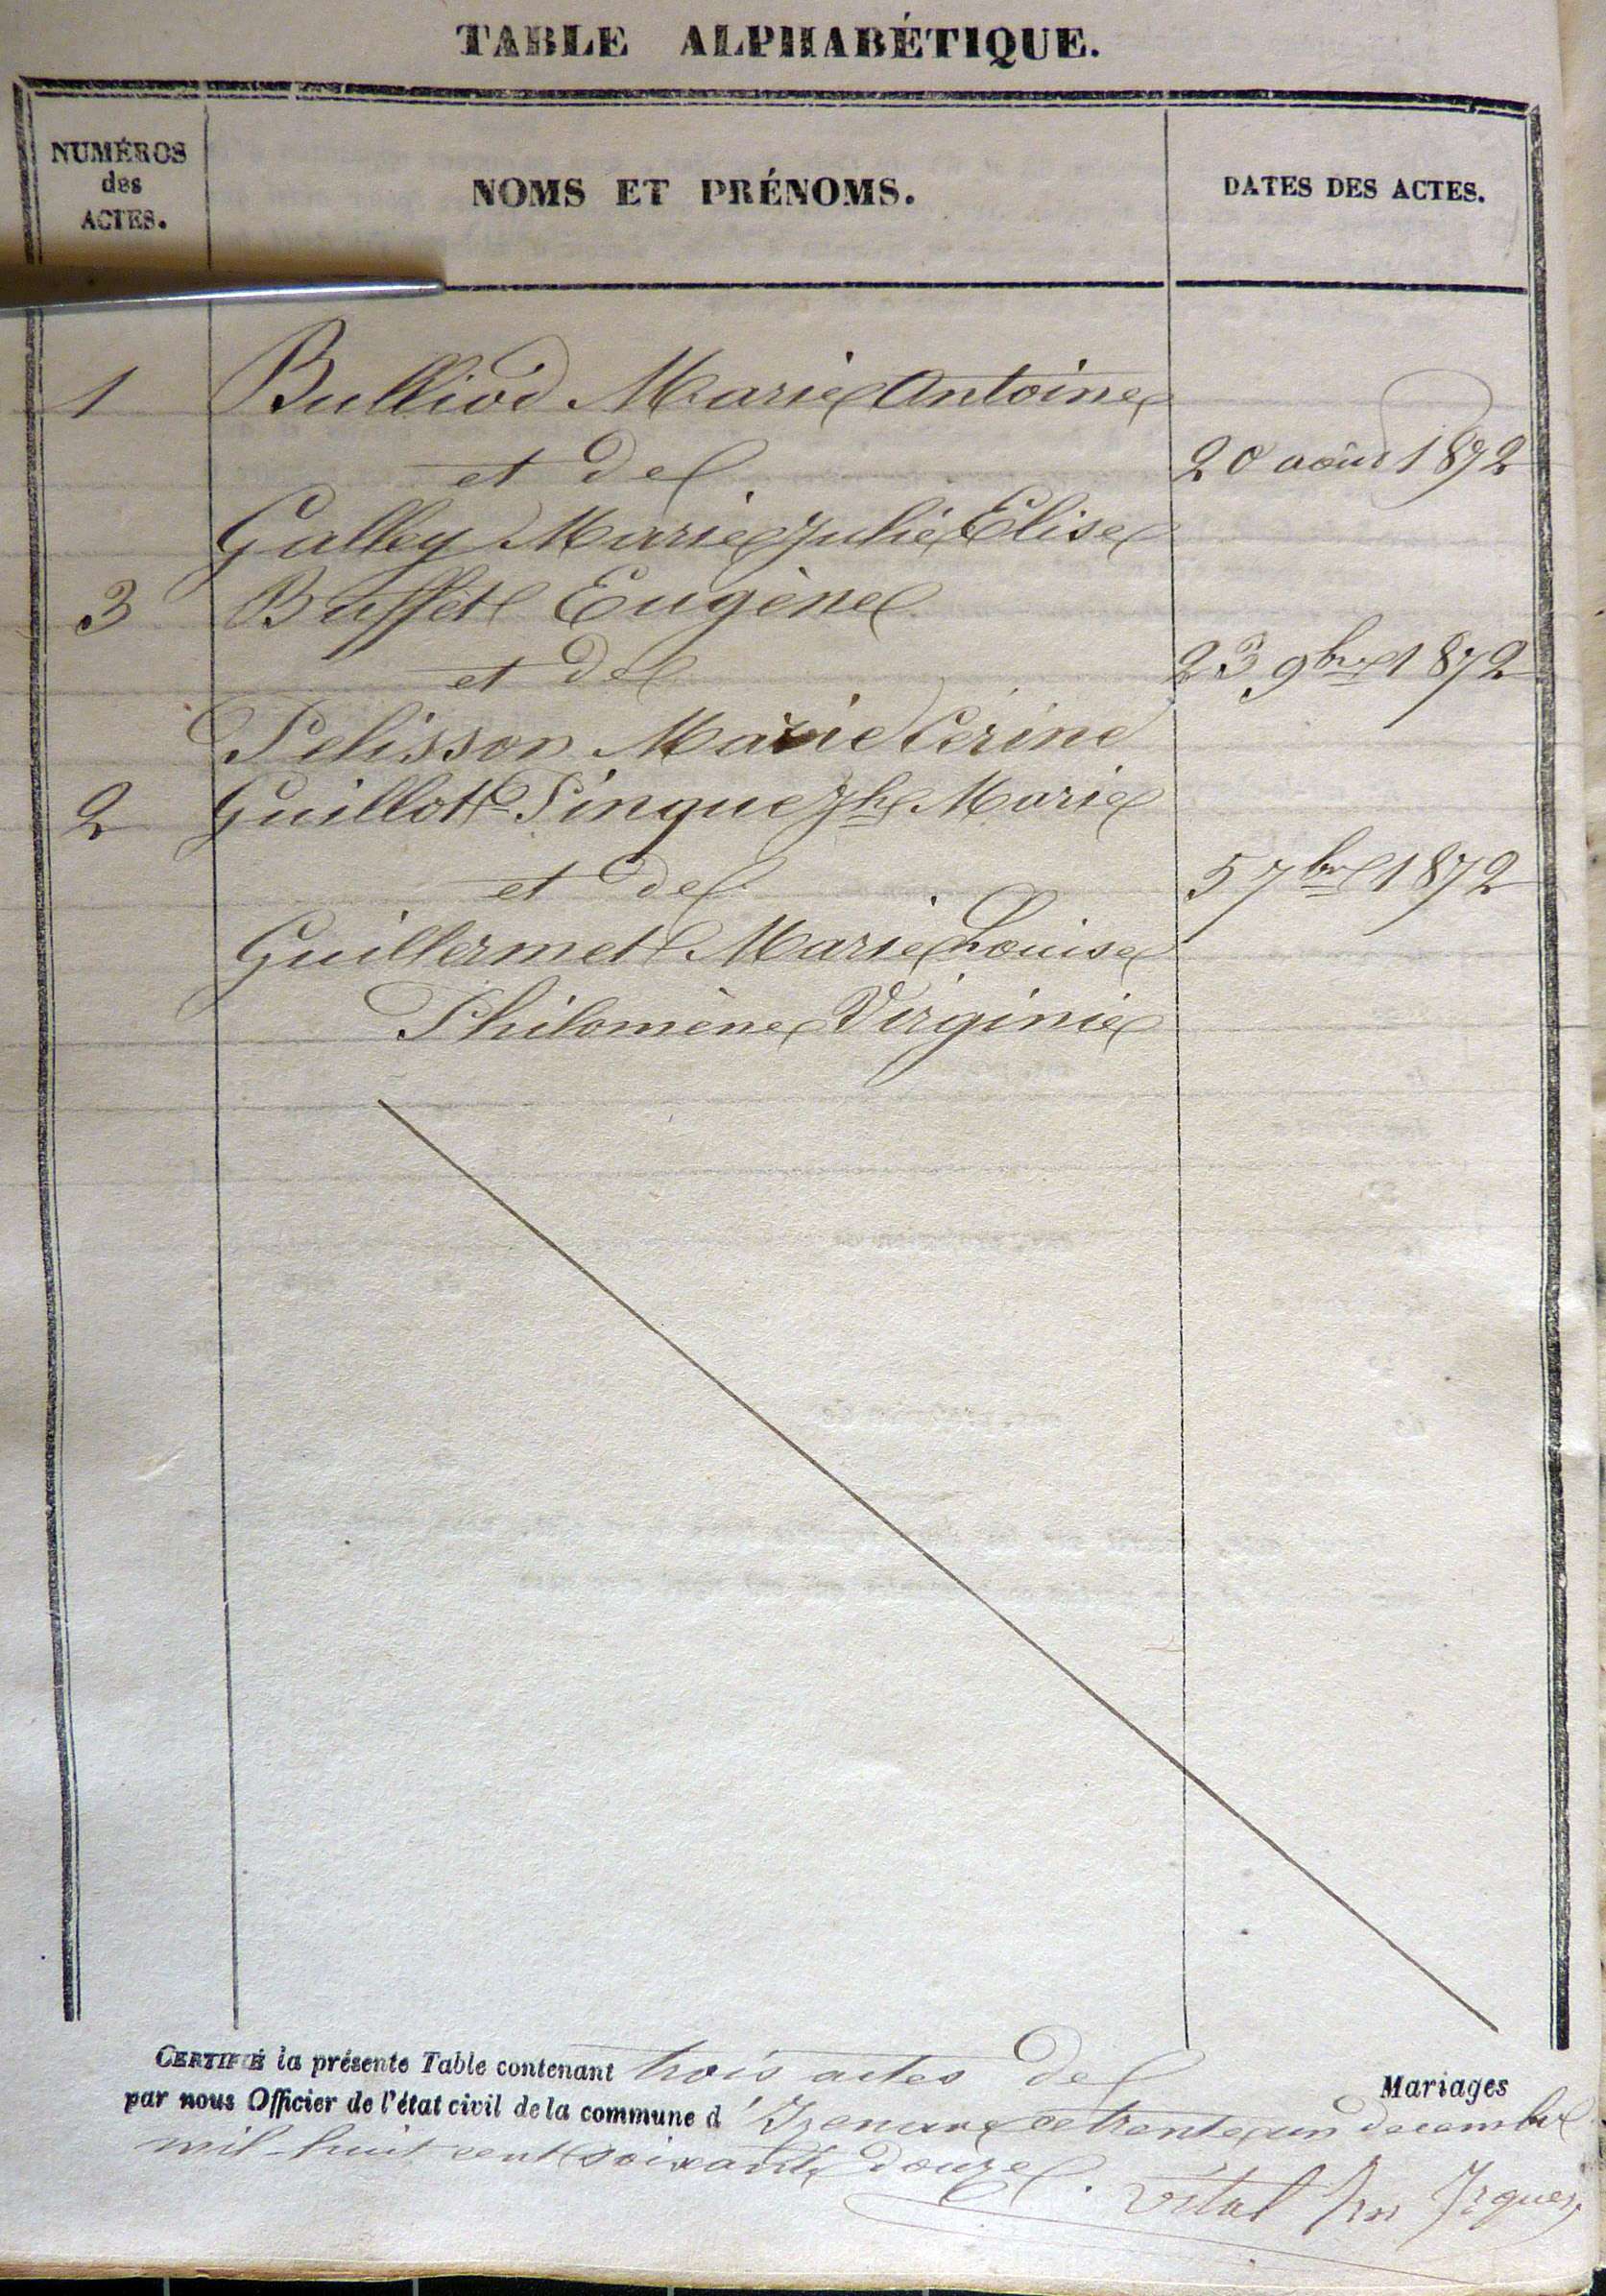 TABLE ALPHABÉTIQUE.
NUMÉROS
des
ACTES.
NOMS ET PRÉNOMS.
DATES DES ACTES.
1 Bulliod Marie Antoine
et de 20 août 1872
Galley Marie Julie Elise
3 Buffet Eugène
et de 23 9bre 1872
Pelisson Marie Cérine
2 Guillot Pingue Jh Marie
et de 5 7bre 1872
Guillermet Marie Louise
Philomène Virginie
CERTIFIÉ la présente Table contenant trois actes de Mariages
par nous Officier de l'état civil de la commune d'Izenave ce trente un décembre
mil huit cent soixante douze. Vital